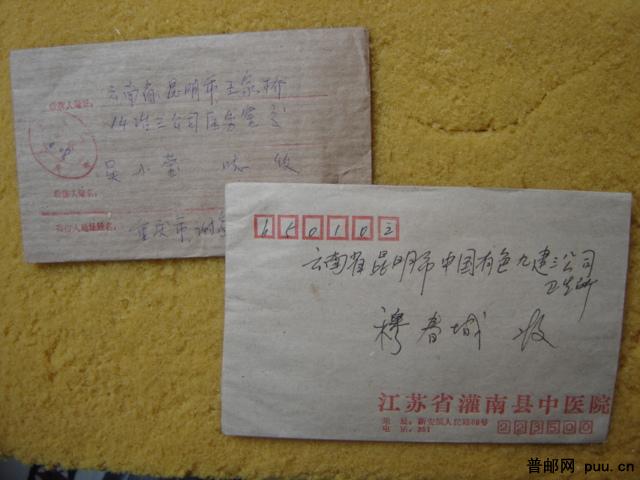 收信人地址:
云南省昆明市王家桥
14冶三公司医务室
吴小莹
收
收信人姓名:
寄信人地址姓名:
重庆市
650102
云南省昆明市中国有色九建三公司
卫生所
穆春城 收
江苏省灌南县中医院
地址:新安镇人民路68号
电话:351
223500
普邮网 puu.cn